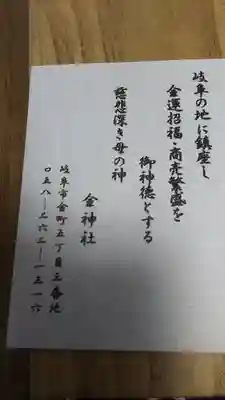 岐阜の地に鎮座し
金運招福・商売繁盛を
御神徳とする
慈悲深き母の神
金神社
岐阜市金町五丁目三番地
〇五八ー二六二ー一三一六